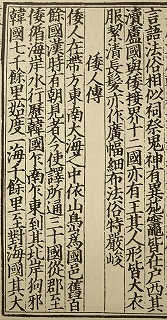 言語法俗相似祠祭鬼神有異施竈皆在戶西其
瀆盧國與倭接界十二國亦有王其人形皆大衣
服絜清長髮亦作廣幅細布法俗特嚴峻
倭人傳
倭人在帶方東南大海之中依山島為國邑舊百
餘國漢時有朝見者今使譯所通三十國從郡至
倭循海岸水行歷韓國乍南乍東到其北岸狗邪
韓國七千餘里始度一海千餘里至對海國其大